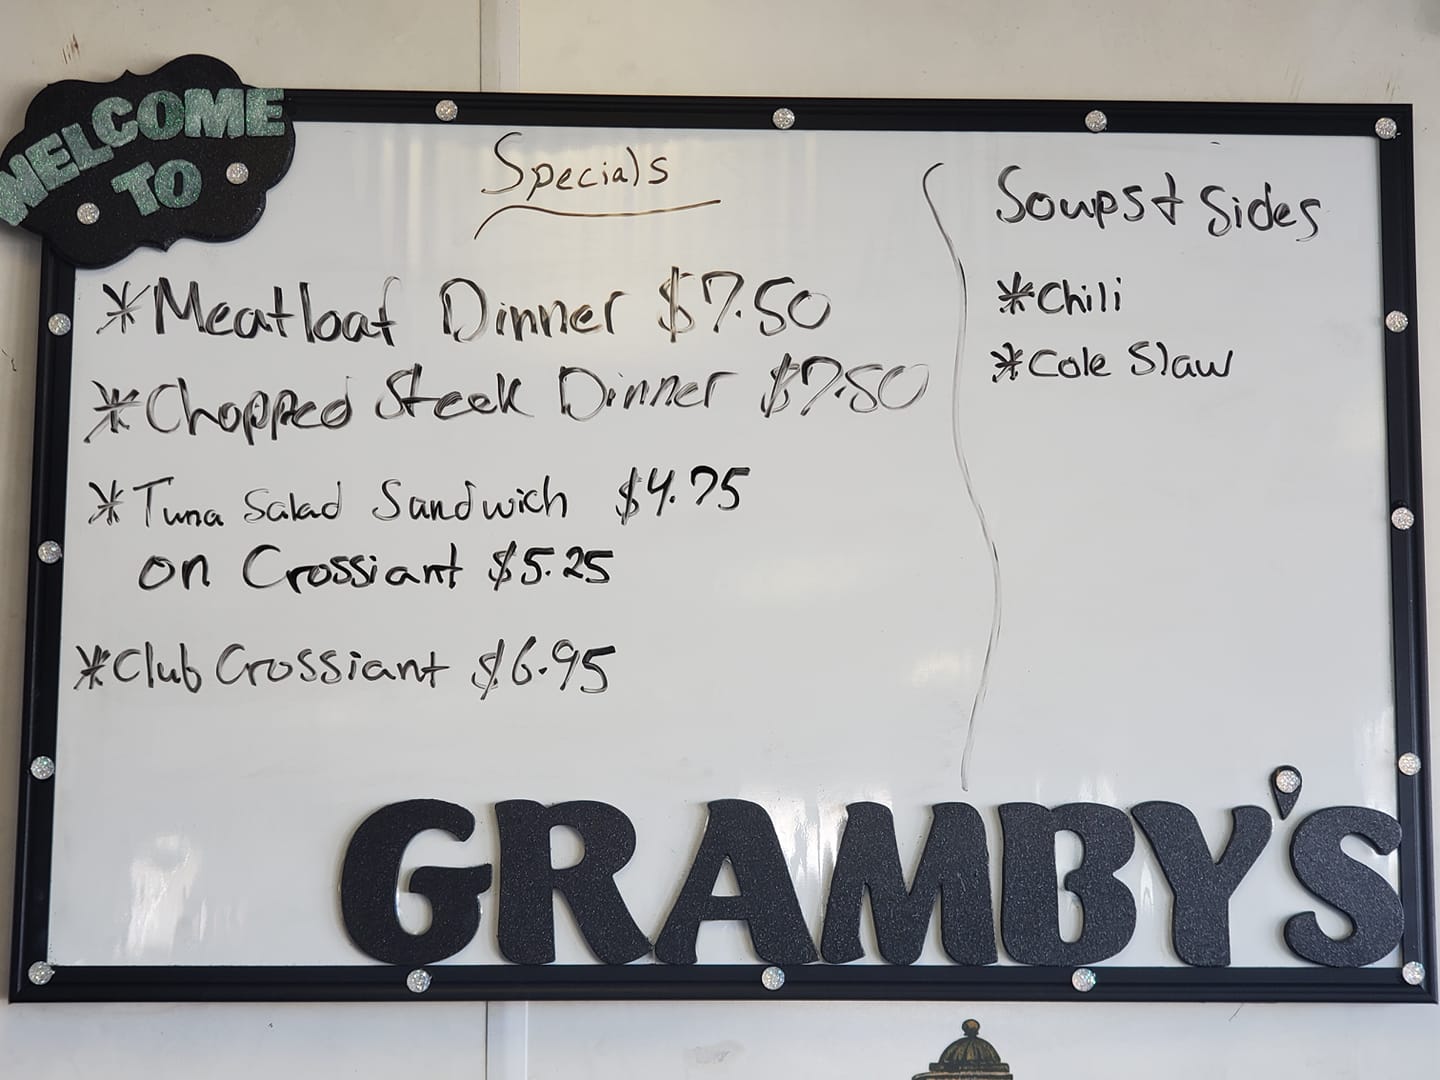 WELCOME
TO
Specials
*Meatloaf Dinner $7.50
*Chopped Steek Dinner $7.50
*Tuna Salad Sandwich $4.75
on Crossiant $5.25
*Club Crossiant $6.95
Soups + Sides
*Chili
*Cole Slaw
GRAMBY'S